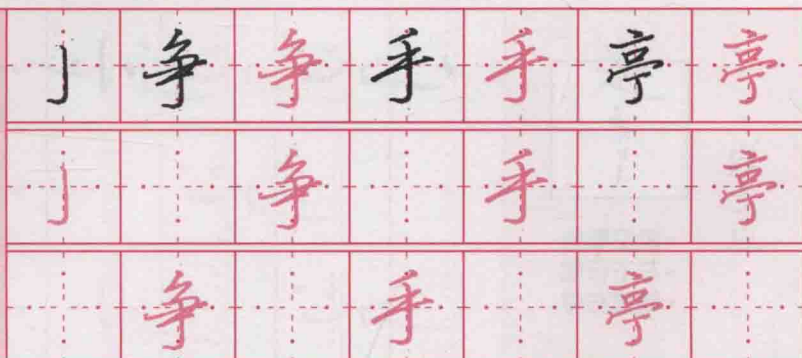 亅 争 争 手 手 亭 亭
亅 争 手 亭
争 手 亭